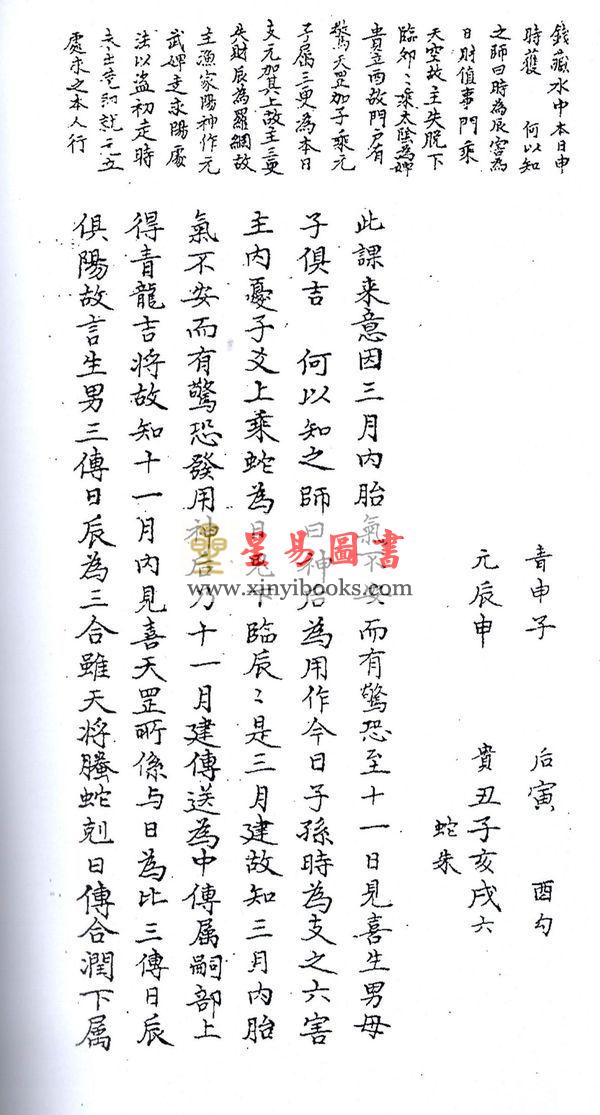 錢藏水中本日申
時獲　何以知
之師曰時為辰害為
日財值事門乘
天空故主失脫下
臨卯〻乘太陰為婢
貴立酉故門戶有
驚天罡加子乘元
子屬三更為本日
支元加其上故主三更
失財辰為羅網故
主漁家陽神作元
武婢走求陽處
法以盜初走時
未出
處求之本人行
青申子　后寅　酉勾
元辰申　貴丑子亥戌六
蛇朱
此課来意因三月內胎氣不安而有驚恐至十一日見喜生男母
子俱吉　何以知之師曰神后為用作今日子孫時為支之六害
主內憂子爻上乘蛇為日鬼下臨辰〻是三月建故知三月內胎
氣不安而有驚恐發用神后乃十一月建傳送為中傳属嗣部上
得青龍吉將故知十一月內見喜天罡所係与日為比三傳日辰
俱陽故言生男三傳日辰為三合雖天將螣蛇剋日傳合潤下属
星易圖書
www.xinyibooks.com